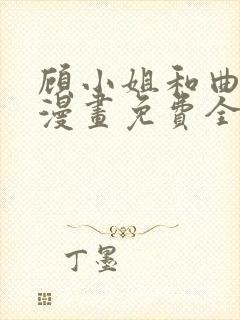 顾小姐和曲
漫畫免費全
丁墨